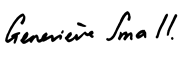 Geneviève Small.